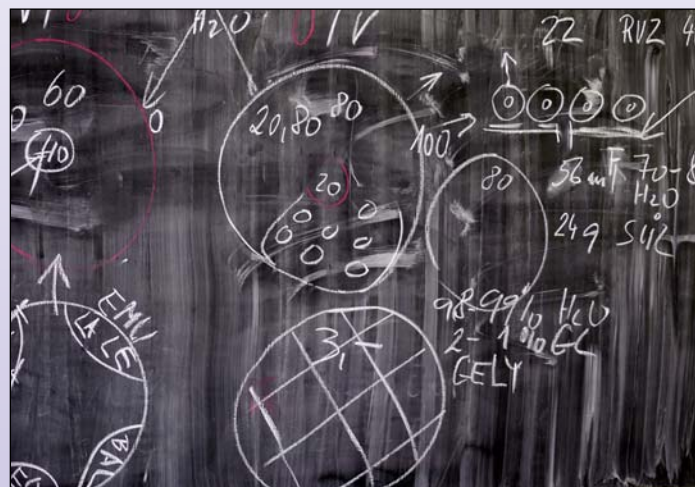 H2O
22 RVZ 4
60
40
0
20,80 80
20
100
80
56 ml 70-8
H2O
24g SŮL
98-99% H2O
2-1% GL
GELY
EMU
LA LE
3,-
BAL